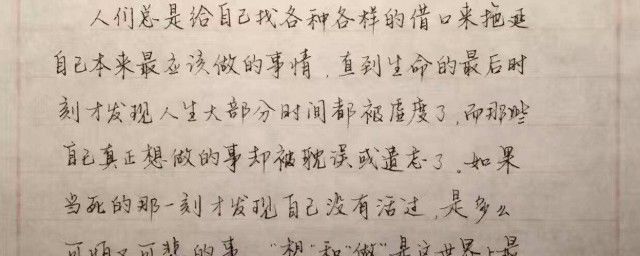 人们总是给自己找各种各样的借口来拖延
自己本来最应该做的事情，直到生命的最后时
刻才发现人生大部分时间都被虚度了，而那些
自己真正想做的事却被耽误或遗忘了。如果
当死的那一刻才发现自己没有活过，是多么
可烦又可悲的事。“想”和“做”是这世界上最